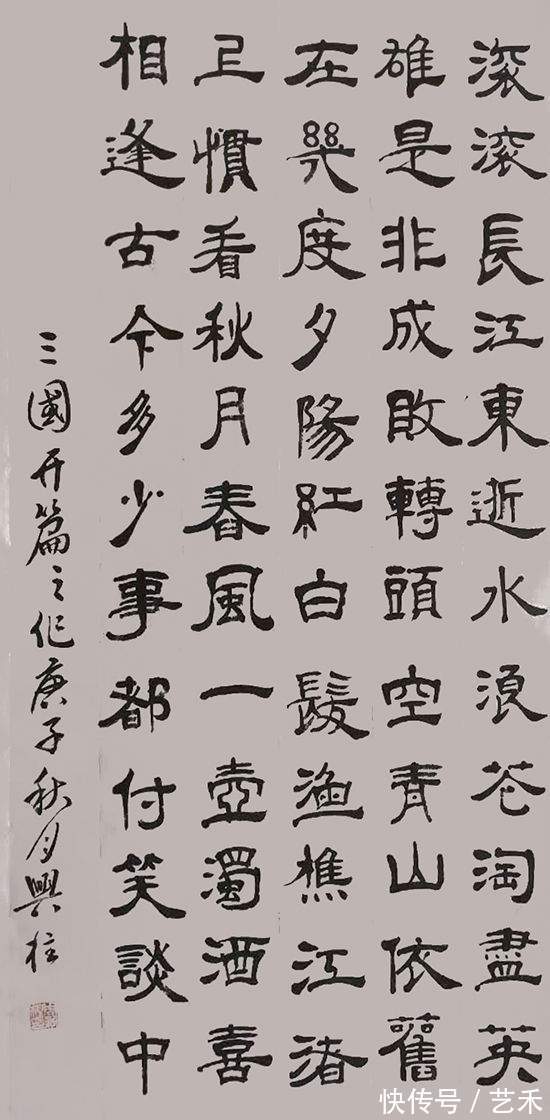 滚滚長江東逝水浪花淘盡英
雄是非成敗轉頭空青山依舊
在幾度夕陽紅白髮漁樵江渚
上慣看秋月春風一壺濁酒喜
相逢古今多少事都付笑談中
三國开篇之作庚子秋月興柱
快传号／艺禾